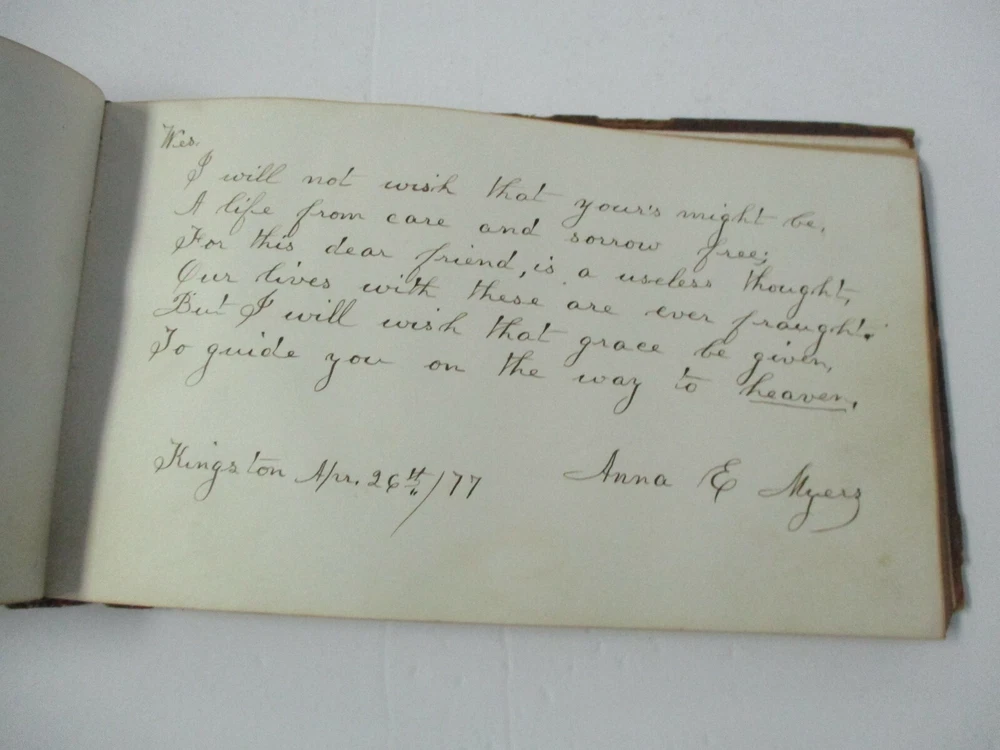 Wes.
I will not wish that your's might be,
A life from care and sorrow free;
For this dear friend, is a useless thought,
Our lives with these are ever fraught.
But I will wish that grace be given,
To guide you on the way to heaven.
Kingston Apr. 26th/77 Anna E Myers